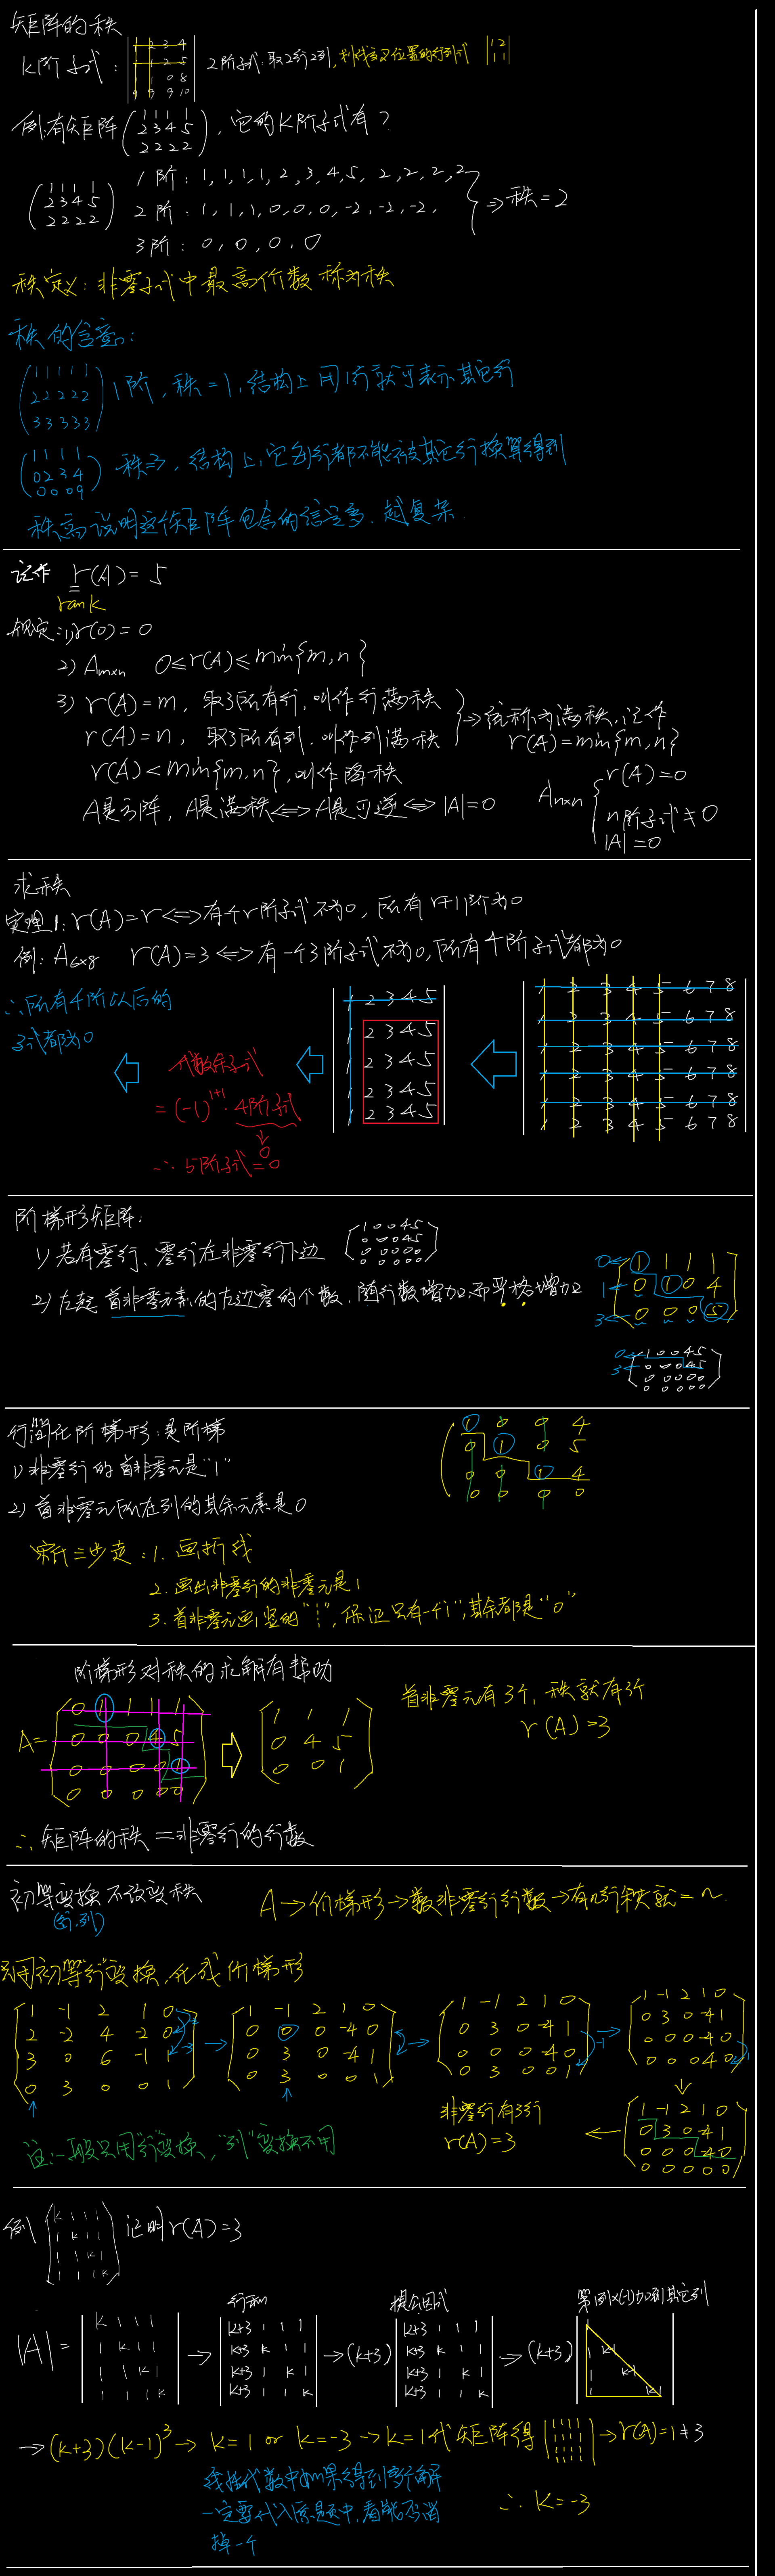 矩阵的秩
K阶子式: | 1 2 3 4 | 2阶子式: 取2行2列, 划线交叉位置的行列式 |1 2|
| 1 1 2 5 | |1 1|
| 1 1 0 8 |
| 9 9 9 10 |
例:有矩阵 ( 1 1 1 1 ) , 它的K阶子式有?
2 3 4 5
2 2 2 2
( 1 1 1 1 ) 1阶: 1, 1, 1, 1, 2, 3, 4, 5, 2, 2, 2, 2
2 3 4 5 2阶: 1, 1, 1, 0, 0, 0, -2, -2, -2, ⇒ 秩 = 2
2 2 2 2 3阶: 0, 0, 0, 0
秩定义: 非零子式中最高阶数称为秩
秩的含意:
( 1 1 1 1 1 ) 1阶, 秩=1, 结构上用1行就可表示其它行
2 2 2 2 2
3 3 3 3 3
( 1 1 1 1 ) 秩=3, 结构上, 它每行都不能被其它行换算得到
0 2 3 4
0 0 0 9
秩高说明这个矩阵包含的信息多, 越复杂
记作 r(A) = 5
rank
规定: 1) r(0) = 0
2) Am×n 0≤r(A)≤min{m,n}
3) r(A) = m, 取了所有行, 叫作行满秩
r(A) = n, 取了所有列, 叫作列满秩
→统称为满秩, 记作
r(A)=min{m,n}
r(A)<min{m,n}, 叫作降秩
A是方阵, A是满秩⟺A是可逆⟺|A|=0
An×n { r(A)=0
n阶子式≠0
|A|=0
求秩
定理1: r(A)=r⟺有个r阶子式不为0, 所有r+1阶为0
例: A6×8 r(A)=3⟺有一个3阶子式不为0, 所有4阶子式都为0
∴所有4阶以后的
子式都为0
代数余子式
=(-1)^{1+1}·4阶子式
0
∴5阶子式=0
1 2 3 4 5
1 2 3 4 5
1 2 3 4 5
1 2 3 4 5
1 2 3 4 5
1 2 3 4 5 6 7 8
1 2 3 4 5 6 7 8
1 2 3 4 5 6 7 8
1 2 3 4 5 6 7 8
1 2 3 4 5 6 7 8
1 2 3 4 5 6 7 8
阶梯形矩阵:
1) 若有零行、零行在非零行下边
1 0 0 4 5
0 0 0 4 5
0 0 0 0 0
0 0 0 0 0
2) 左起 首非零元素的左边零的个数, 随行数增加而严格增加
0← 1 1 1 1
1← 0 1 0 4
3← 0 0 0 5
0← 1 0 0 4 5
3← 0 0 0 4 5
0 0 0 0 0
0 0 0 0 0
行简化阶梯形: 是阶梯
1) 非零行的首非零元是"1"
2) 首非零元所在列的其余元素是0
1 0 0 4
0 1 0 5
0 0 1 4
0 0 0 0
宋氏三步走: 1. 画折线
2. 画出非零行的非零元是1
3. 首非零元画竖的"|", 保证只有一个1, 其余都是"0"
阶梯形对秩的求解有帮助
A= 0 1 1 1 1
0 0 0 4 5
0 0 0 0 1
0 0 0 0 0
1 1 1
0 4 5
0 0 1
首非零元有3个, 秩就有3个
r(A)=3
∴矩阵的秩=非零行的行数
初等变换不改变秩
(行,列)
A→阶梯形→数非零行行数→有几行秩就=~
利用初等行变换, 化成阶梯形
1 -1 2 1 0
2 -2 4 -2 0
3 0 6 -1 1
0 3 0 0 1
→
1 -1 2 1 0
0 0 0 -4 0
0 3 0 -4 1
0 3 0 0 1
→
1 -1 2 1 0
0 3 0 -4 1
0 0 0 -4 0
0 3 0 0 1
-1→
1 -1 2 1 0
0 3 0 -4 1
0 0 0 -4 0
0 0 0 4 0
1 -1 2 1 0
0 3 0 -4 1
0 0 0 -4 0
0 0 0 0 0
非零行有3行
r(A)=3
注: 一般只用"行"变换, "列"变换不用
例
K 1 1 1
1 K 1 1
1 1 K 1
1 1 1 K
证明r(A)=3
|A| =
K 1 1 1
1 K 1 1
1 1 K 1
1 1 1 K
→ 行和
K+3 1 1 1
K+3 K 1 1
K+3 1 K 1
K+3 1 1 K
→(K+3) 提公因式
K+3 1 1 1
K+3 K 1 1
K+3 1 K 1
K+3 1 1 K
→(K+3) 第1列×(-1)加到其它列
1
1 K-1
1 K-1
1 K-1
→(K+3)(K-1)³→ K=1 or K=-3→K=1代矩阵得
1 1 1 1
1 1 1 1
1 1 1 1
1 1 1 1
→r(A)=1≠3
线性代数中如果得到多个解
一定要代入原题中, 看能否消
掉一个
∴ K=-3